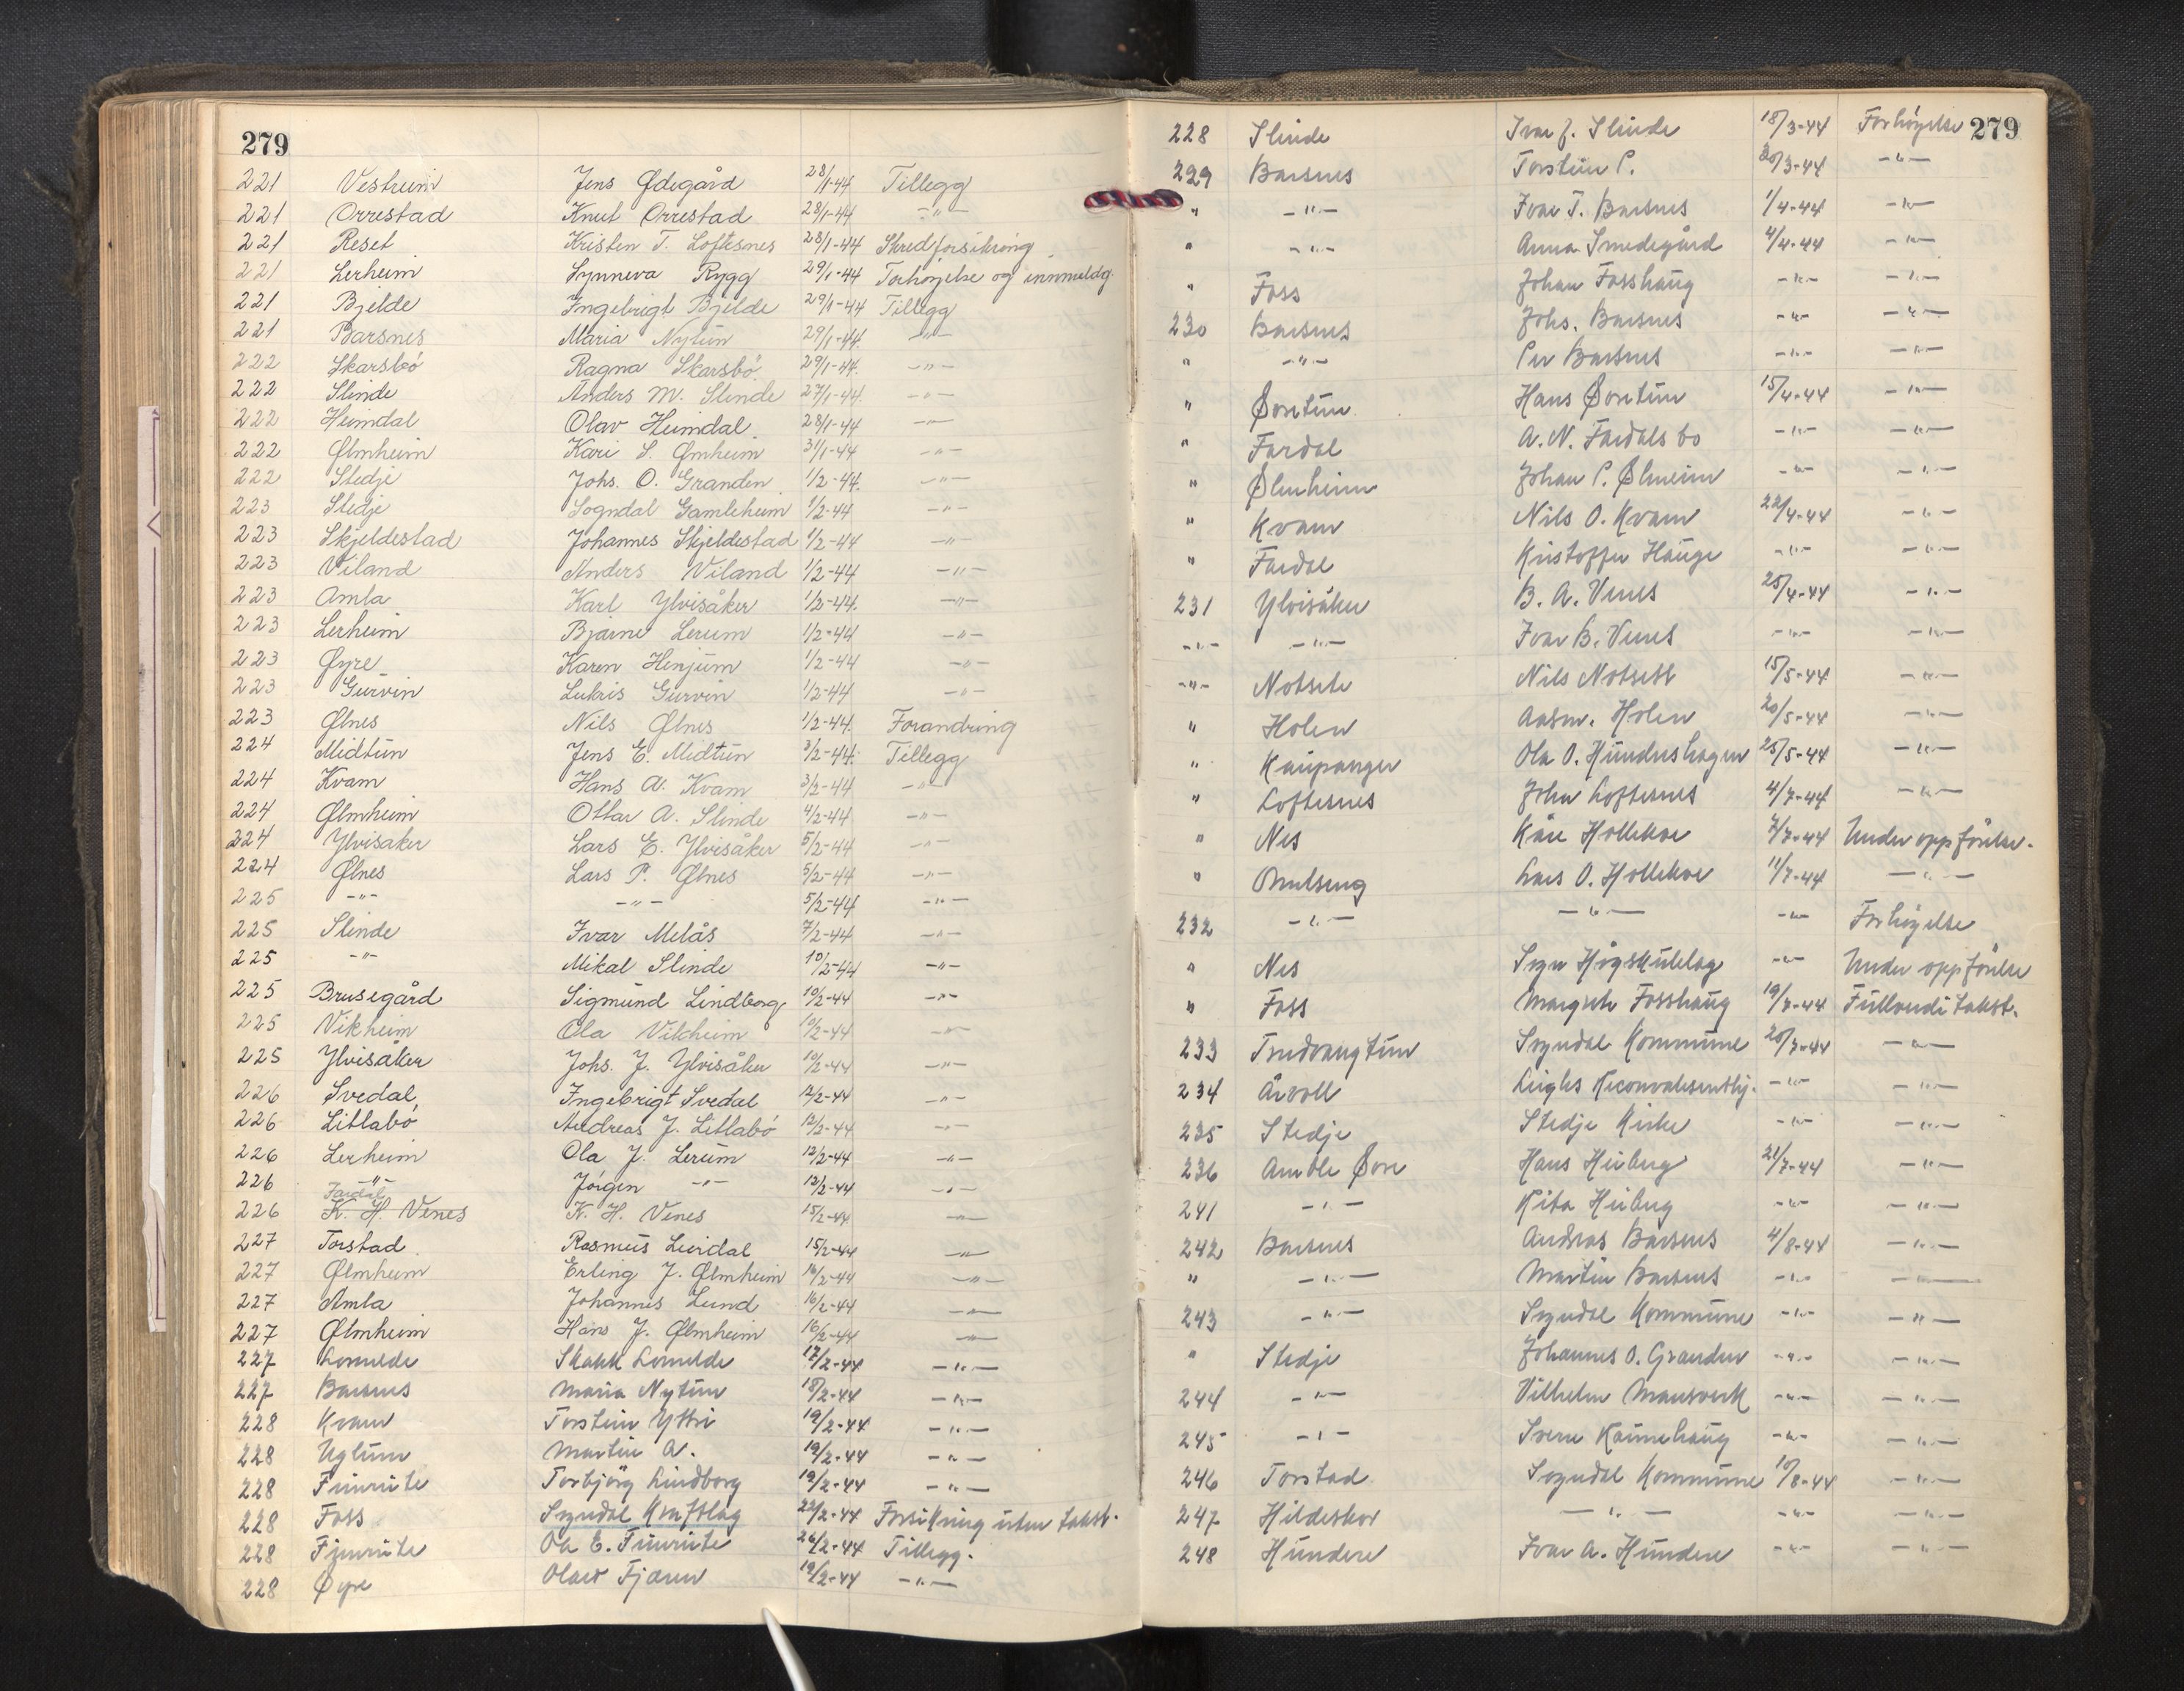 279
221 Vestreim Jens Ødegård 28/1-44 Tillegg
221 Orrestad Knut Orrestad 28/1-44 -"-
221 Reset Kristen T. Loftesnes 28/1-44 Skredforsikring
221 Lerheim Synneva Rygg 29/1-44 Forhøyelse og innmeldg.
221 Bjelde Ingebrigt Bjelde 29/1-44 Tillegg
221 Barsnes Maria Nytun 29/1-44 -"-
222 Skarsbö Ragna Skarsbö 29/1-44 -"-
222 Slinde Anders M. Slinde 27/1-44 -"-
222 Heimdal Olav Heimdal 28/1-44 -"-
222 Ølmheim Kari S. Ømheim 31/1-44 -"-
222 Stedje Johs. O. Granden 1/2-44 -"-
223 Stedje Sogndal Gamleheim 1/2-44 -"-
223 Skjeldestad Johannes Skjeldestad 1/2-44 -"-
223 Viland Anders Viland 1/2-44 -"-
223 Amla Karl Ylvisåker 1/2-44 -"-
223 Lerheim Bjarne Lerum 1/2-44 -"-
223 Øyre Karen Henjum 1/2-44 -"-
223 Gurvin Lukris Gurvin 1/2-44 -"-
223 Ølnes Nils Ølnes 1/2-44 Forandring
224 Midtun Jens E. Midtun 3/2-44 Tillegg
224 Kvam Hans A. Kvam 3/2-44 -"-
224 Ølmheim Ottar A. Slinde 4/2-44 -"-
224 Ylvisaker Lars E. Ylvisåker 5/2-44 -"-
224 Ølnes Lars P. Ølnes 5/2-44 -"-
225 -"- -"- 5/2-44 -"-
225 Slinde Ivar Melås 7/2-44 -"-
225 -"- Mikal Slinde 10/2-44 -"-
225 Brusegård Sigmund Lindborg 10/2-44 -"-
225 Vikheim Ola Vikheim 10/2-44 -"-
225 Ylvisåker Johs. J. Ylvisåker 10/2-44 -"-
226 Svedal Ingebrigt Svedal 12/2-44 -"-
226 Litlabö Andreas J. Litlabö 12/2-44 -"-
226 Lerheim Ola J. Lerum 12/2-44 -"-
226 -"- Jörgen -"- 12/2-44 -"-
Fardal
226 K. H. Venes K. H. Venes 15/2-44 -"-
227 Torstad Rasmus Leirdal 15/2-44 -"-
227 Ølmheim Erling J. Ølmheim 16/2-44 -"-
227 Amla Johannes Lund 16/2-44 -"-
227 Ølmheim Hans J. Ølmheim 16/2-44 -"-
227 Lomelde Lomelde 17/2-44 -"-
227 Barsnes Maria Nytun 18/2-44 -"-
228 Kvam Torstein Yttri 19/2-44 -"-
228 Uglum Martin A. 19/2-44 -"-
228 Fimreite Torbjörg Lindborg 19/2-44 -"-
228 Foss Sogndal 22/2-44 Forsikring uten takst.
228 Fimreite Ola E. Fimreite 26/2-44 Tillegg.
228 Øyre Olav Fjæren 19/2-44 -"-
279
228 Slinde Ivar J. Slinde 18/3-44 Forhöyelse
229 Barsnes Torstein P. 30/3-44 -"-
" -"- Ivar T. Barsnes 1/4-44 -"-
" -"- Anna Smedegård 4/4-44 -"-
" Foss Johan Fosshaug -"- -"-
230 Barsnes Johs. Barsnes -"- -"-
" -"- Per Barsnes -"- -"-
" Øvretun Hans Øvretun 15/4-44 -"-
" Fardal A. N. Fardalsbö -"- -"-
" Ølmheim Johan P. Ølmeim -"- -"-
" Kvam Nils O. Kvam 22/4-44 -"-
" Fardal Kristoffer Hauge -"- -"-
231 Ylvisåker B. A. Venes 25/4-44 -"-
-"- -"- Ivar B. Venes -"- -"-
-"- Notsete Nils Notsett 15/5-44 -"-
" Holen Aasm. Holen 20/5-44 -"-
" Kaupanger Ola O. Hundershagen 25/5-44 -"-
" Loftesnes John Loftesnes 4/7-44 -"-
" Nes Kåre Hollekve 7/7-44 Under oppförelse.
" Lars O. Hollekve 11/7-44 -"-
232 -"- -"- -"- Forhöyelse
" Nes Sogn Högskulelag -"- Under oppförelse
" Foss Margrete Fosshaug 19/7-44 Fullverdi takst.
233 Trudvangtun Sogndal Kommune 20/7-44 -"-
234 Åvoll -"- -"-
235 Stedje Stedje Kirke -"- -"-
236 Amble Øvre Hans Heiberg 21/7-44 -"-
241 -"- Rita Heiberg -"- -"-
242 Barsnes Andreas Barsnes 4/8-44 -"-
" -"- Martin Barsnes -"- -"-
243 -"- Sogndal Kommune -"- -"-
" Stedje Johannes O. Granden -"- -"-
244 -"- Vilhelm Mansverk -"- -"-
245 -"- Sverre -"- -"-
246 Torstad Sogndal Kommune 10/8-44 -"-
247 Hildeskor -"- -"- -"-
248 Hundere Ivar A. Hundere -"- -"-